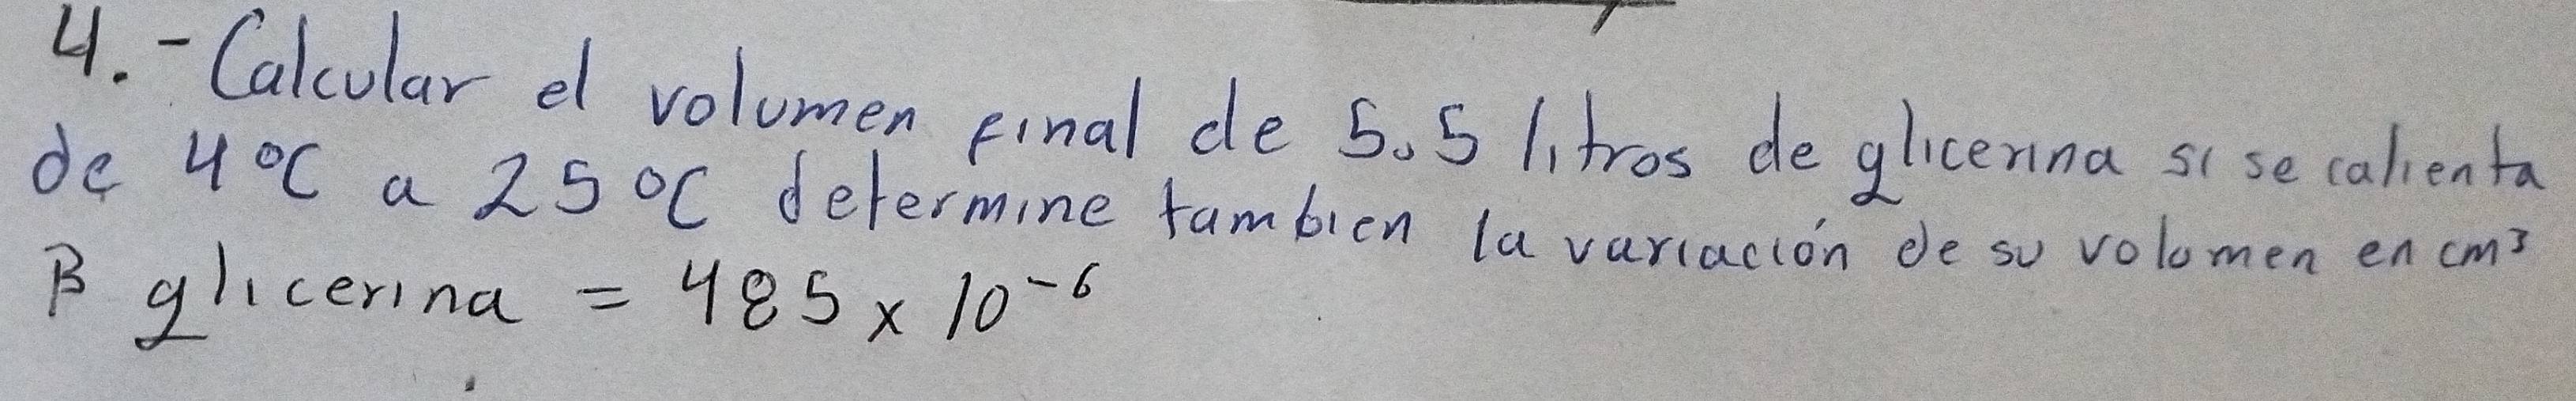 4.- Calcular el volumen final de 5.5 litros de glicerina si se calienta
de 4°C a 25°C determine tambien la variación de su volumen en cm³
β glicerina = 485 x 10⁻⁶